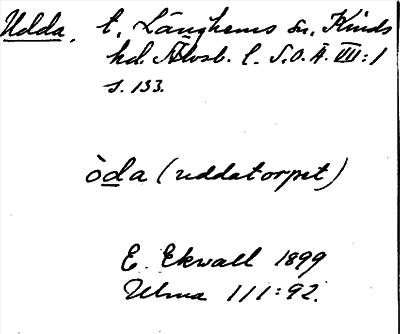 Udda, t. Länghems sn, Kinds
hd. Älvsb. l. S.O.Ä. VII:1
s. 133.
òda (uddatorpet)
E. Ekwall 1899
Ulma 111:92.